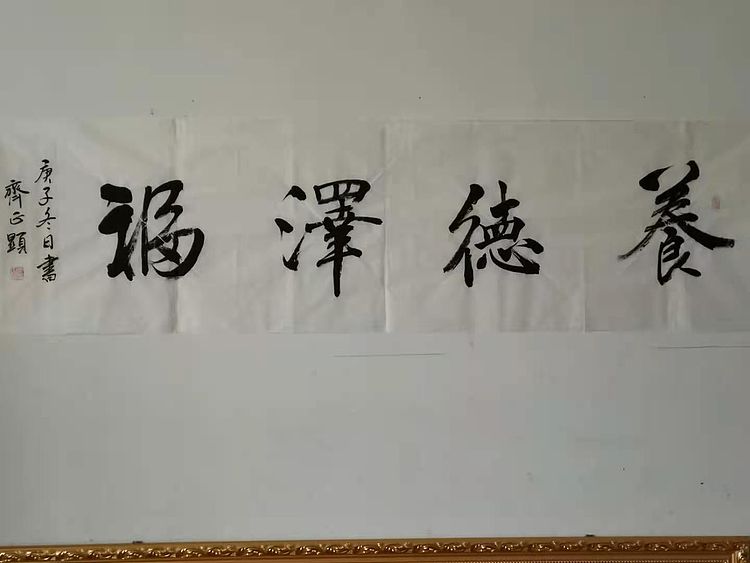 養德澤福
庚子冬日書
齊正顯